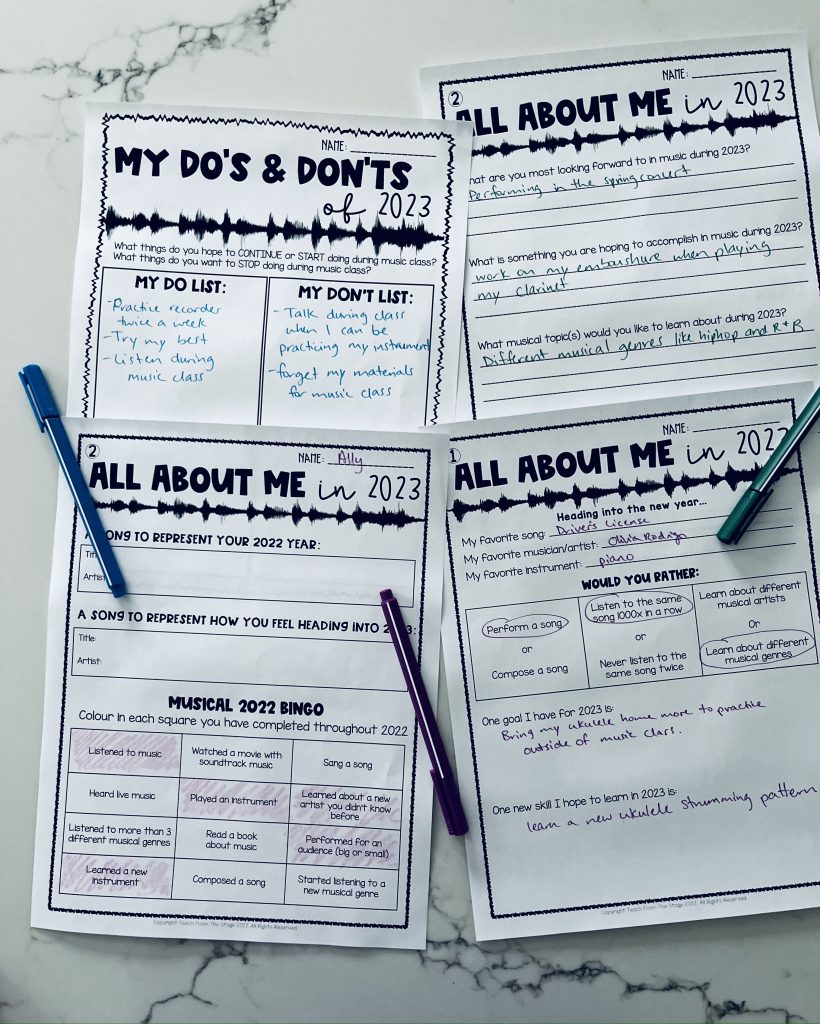 NAME:
MY DO'S & DON'TS
of 2023
What things do you hope to CONTINUE or START doing during music class?
What things do you want to STOP doing during music class?
MY DO LIST:
- Practice recorder
twice a week
- Try my best
- Listen during
music class
MY DON'T LIST:
- Talk during class
when I can be
practicing my instrument
- forget my materials
for music class
2
NAME:
ALL ABOUT ME in 2023
hat are you most looking forward to in music during 2023?
Performing in the spring concert
What is something you are hoping to accomplish in music during 2023?
work on my emboushure when playing
my clarinet
What musical topic(s) would you like to learn about during 2023?
Different musical genres like hiphop and R+B
2
NAME: Ally
ALL ABOUT ME in 2023
A SONG TO REPRESENT YOUR 2022 YEAR:
Title
Artist
A SONG TO REPRESENT HOW YOU FEEL HEADING INTO 2023:
Title:
Artist:
MUSICAL 2022 BINGO
Colour in each square you have completed throughout 2022
Listened to music
Watched a movie with
soundtrack music
Sang a song
Heard live music
Played an instrument
Learned about a new
artist you didn't know
before
Listened to more than 3
different musical genres
Read a book
about music
Performed for an
audience (big or small)
Learned a new
instrument
Composed a song
Started listening to a
new musical genre
Copyright Teach From The Stage 2022. All Rights Reserved.
1
NAME:
ALL ABOUT ME in 2023
Heading into the new year...
My favorite song: Drivers License
My favorite musician/artist: Olivia Rodrigo
My favorite instrument: piano
WOULD YOU RATHER:
Perform a song
or
Compose a song
Listen to the same
song 1000x in a row
or
Never listen to the
same song twice
Learn about different
musical artists
Or
Learn about different
musical genres
One goal I have for 2023 is:
Bring my ukulele home more to practice
outside of music class.
One new skill I hope to learn in 2023 is:
learn a new ukulele strumming pattern
Copyright Teach From The Stage 2022. All Rights Reserved.